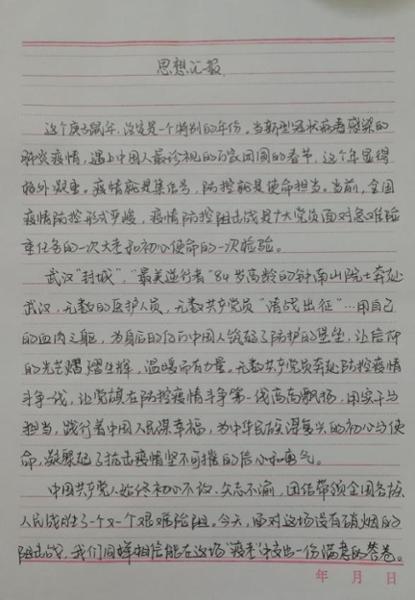 思想汇报
这个庚子鼠年,注定是一个特别的年份。当新型冠状病毒感染的
肺炎疫情,遇上中国人最珍视的万家团圆的春节,这个年显得
格外凝重。疫情就是集结号,防控就是使命担当。当前,全国
疫情防控形式严峻,疫情防控阻击战是广大党员面对急难险
重任务的一次大考和初心使命的一次检验。
武汉“封城”,“最美逆行者”84岁高龄的钟南山院士奔赴
武汉,无数的医护人员,无数共产党员“请战出征”…用自己
的血肉之躯,为身后的亿万中国人筑起了防护的堡垒,让信仰
的光芒熠熠生辉,温暖而有力量。无数共产党员奔赴防控疫情
斗争一线,让党旗在防控疫情斗争第一线高高飘扬,用实干与
担当,践行着中国人民谋幸福,为中华民族谋复兴的初心与使
命,凝聚起了抗击疫情坚不可摧的信心和勇气。
中国共产党人始终初心不改、矢志不渝,团结带领全国各族
人民战胜了一个又一个艰难险阻。今天,面对这场没有硝烟的
阻击战,我们同样相信能在这场“疫考”中交出一份满意的答卷。
年 月 日